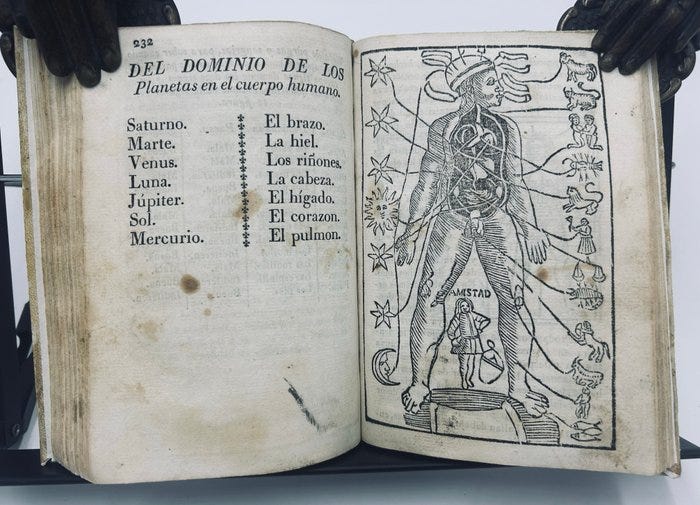 232
DEL DOMINIO DE LOS
Planetas en el cuerpo humano.
Saturno. El brazo.
Marte. La hiel.
Venus. Los riñones.
Luna. La cabeza.
Júpiter. El hígado.
Sol. El corazon.
Mercurio. El pulmon.
AMISTAD